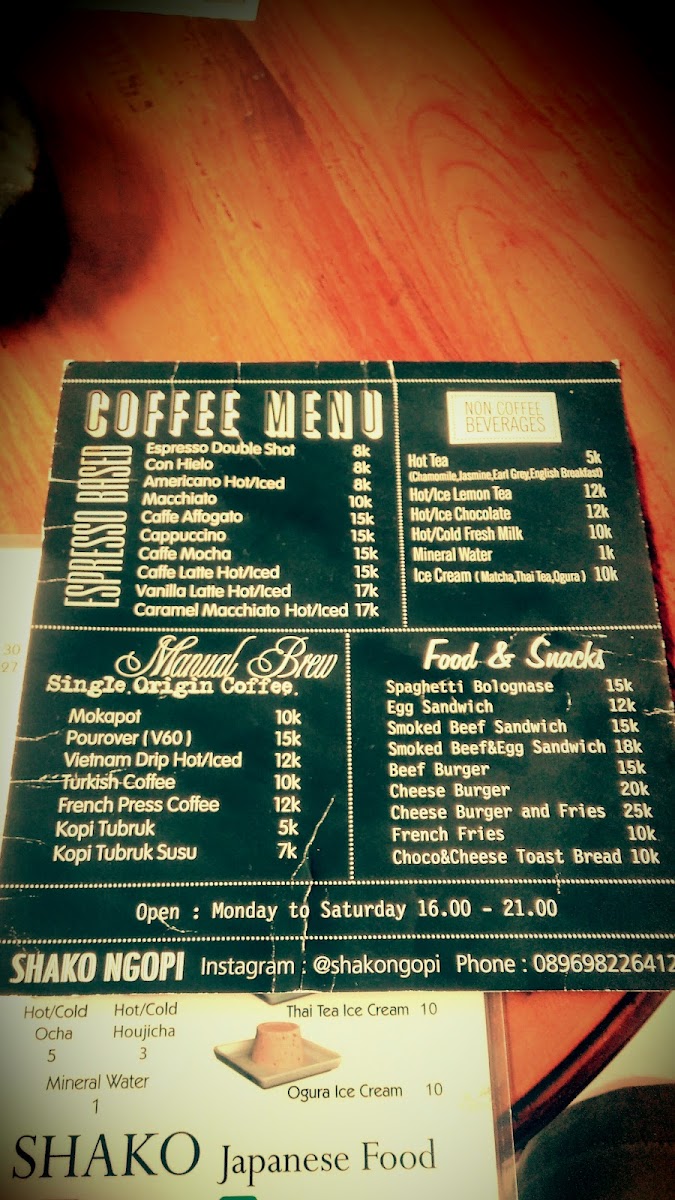 COFFEE MENU
ESPRESSO BASED
Espresso Double Shot 8k
Con Hielo 8k
Americano Hot/Iced 8k
Macchiato 10k
Caffe Affogato 15k
Cappuccino 15k
Caffe Mocha 15k
Caffe Latte Hot/Iced 15k
Vanilla Latte Hot/Iced 17k
Caramel Macchiato Hot/Iced 17k
NON COFFEE
BEVERAGES
Hot Tea 5k
(Chamomile,Jasmine,Earl Grey,English Breakfast)
Hot/Ice Lemon Tea 12k
Hot/Ice Chocolate 12k
Hot/Cold Fresh Milk 10k
Mineral Water 1k
Ice Cream ( Matcha,Thai Tea,Ogura ) 10k
Manual Brew
Single Origin Coffee.
Mokapot 10k
Pourover ( V60 ) 15k
Vietnam Drip Hot/Iced 12k
Turkish Coffee 10k
French Press Coffee 12k
Kopi Tubruk 5k
Kopi Tubruk Susu 7k
Food & Snacks
Spaghetti Bolognase 15k
Egg Sandwich 12k
Smoked Beef Sandwich 15k
Smoked Beef&Egg Sandwich 18k
Beef Burger 15k
Cheese Burger 20k
Cheese Burger and Fries 25k
French Fries 10k
Choco&Cheese Toast Bread 10k
Open : Monday to Saturday 16.00 - 21.00
SHAKO NGOPI Instagram : @shakongopi Phone : 089698226412
30
27
Hot/Cold
Ocha
5
Hot/Cold
Houjicha
3
Mineral Water
1
Thai Tea Ice Cream 10
Ogura Ice Cream 10
SHAKO Japanese Food